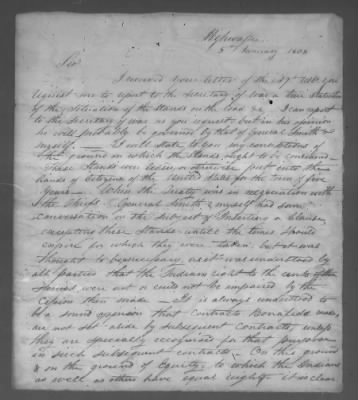 Highwassee
5th January 1808
Sir
I received your letter of the 27th Ult. you
request me to report to the Secretary of War a true statement
of the situation of the Stands on the road &c. I can report
to the Secretary of War as you request but in his opinion
he will probably be governed by that of General Smith &
myself. — I will state to you my conceptions of
the grounds on which the Stands ought to be considered
These Stands were leased or otherwise put into the
hands of Citizens of the United States for the term of five
years — When the Treaty was in negociation with
the Chiefs General Smith & myself had some
conversation on the subject of inserting a Clause
excepting these Stands untill the times should
expire for which they were taken but it was
thought to be unnecessary as it was understood by
all parties that the Indians right to the rents of these
Stands were not or could not be impaired by the
Cession then made — It is always understood to
be a sound opinion that contracts Bonafied made,
are not set aside by subsequent Contracts, unless
they are specially recognised for that purpose
in such subsequent contracts. On this ground
& on the ground of Equity to which the Indians
as well as others have equal rights it is clear